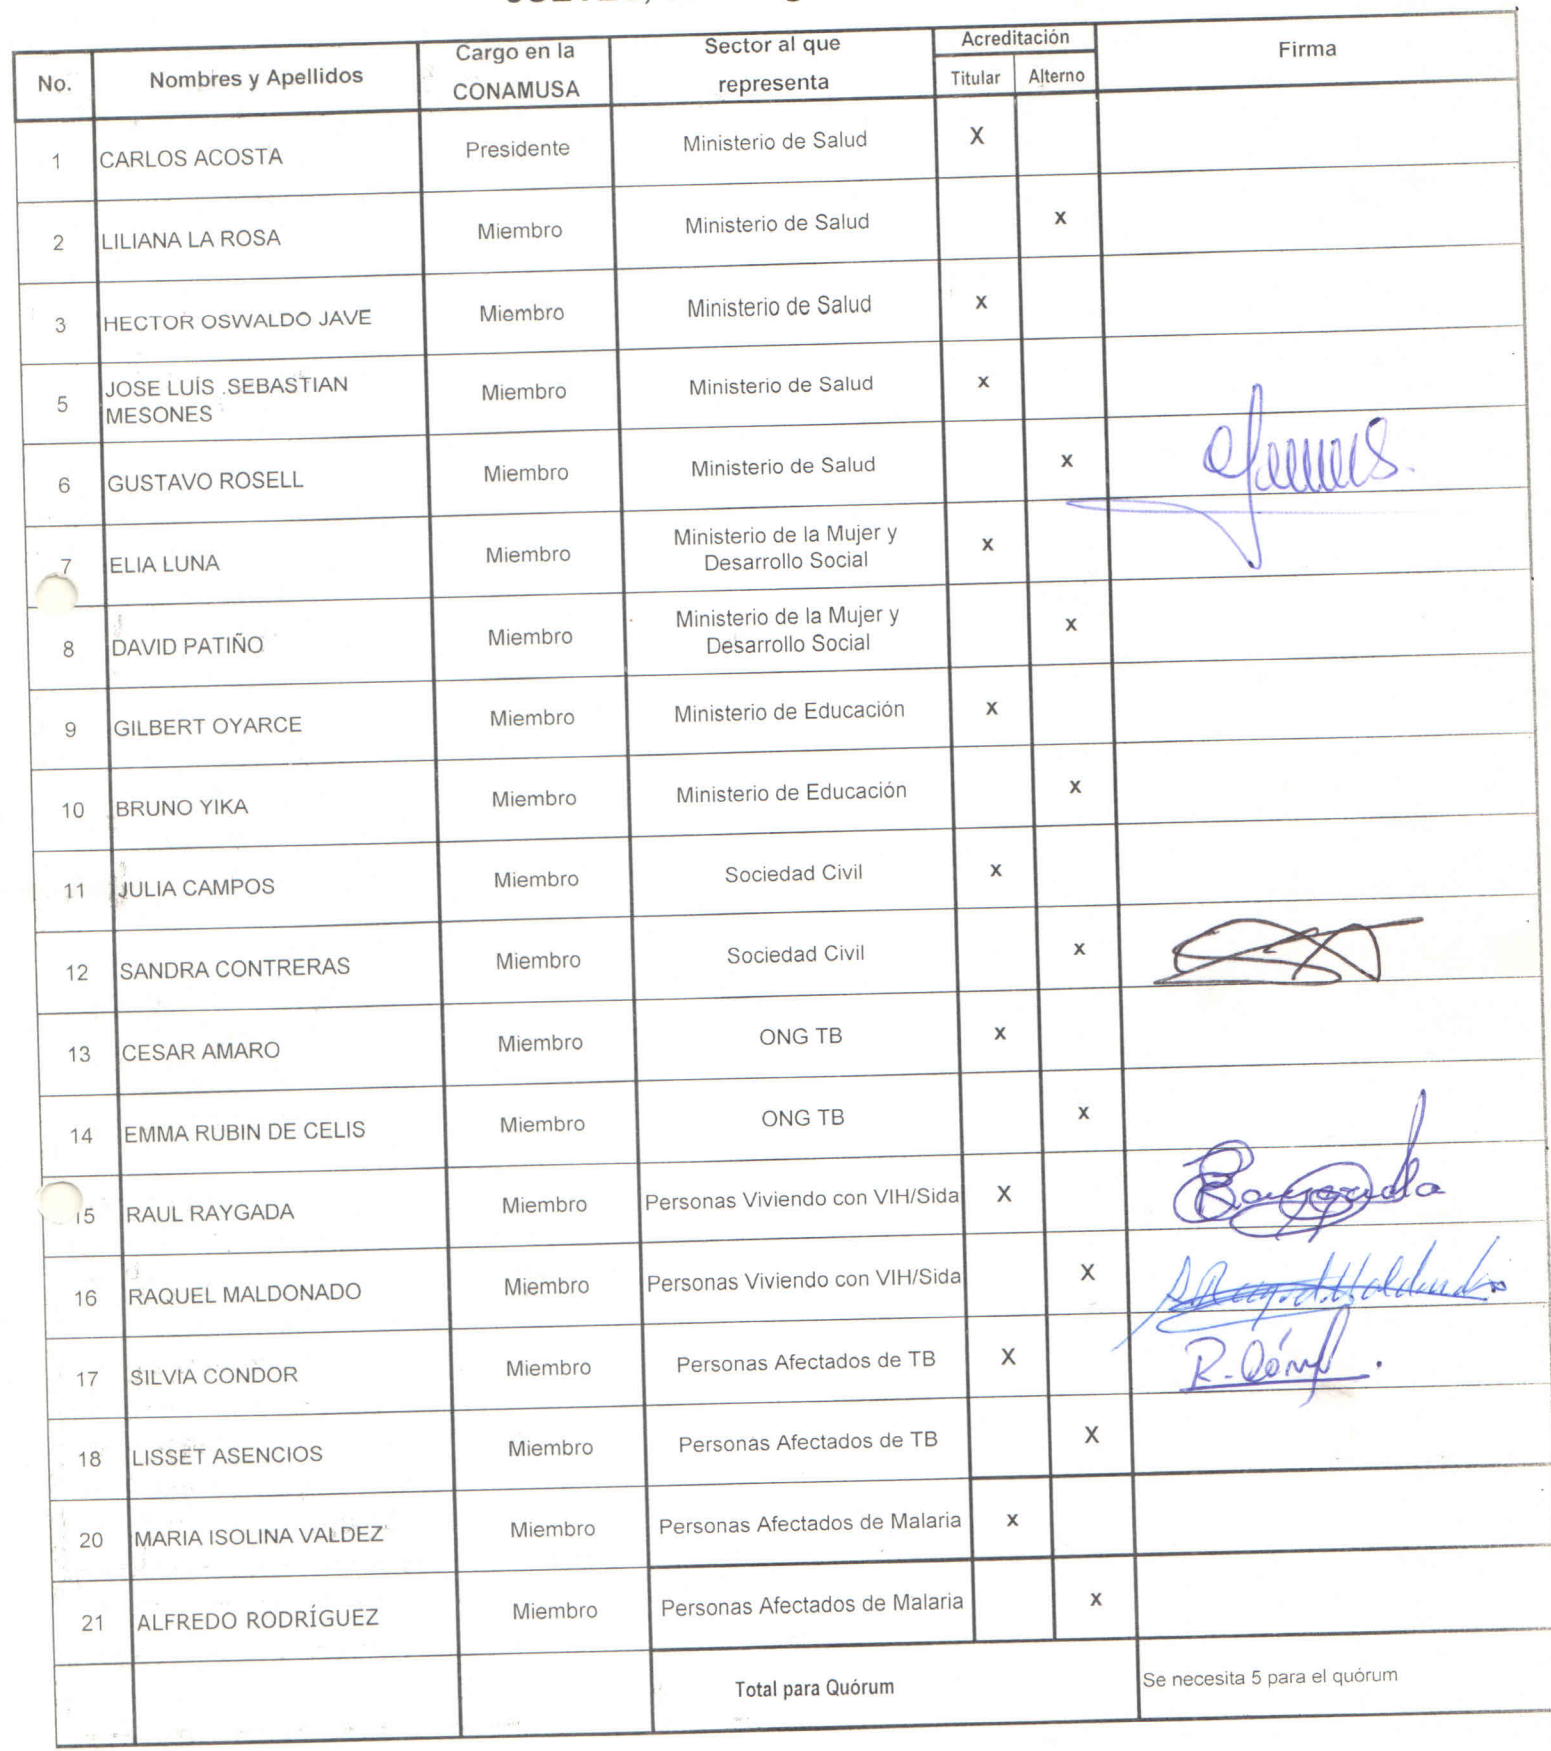 No. Nombres y Apellidos Cargo en la CONAMUSA Sector al que representa Acreditación Titular Alterno Firma
1 CARLOS ACOSTA Presidente Ministerio de Salud X
2 LILIANA LA ROSA Miembro Ministerio de Salud x
3 HECTOR OSWALDO JAVE Miembro Ministerio de Salud x
5 JOSE LUÍS .SEBASTIAN MESONES Miembro Ministerio de Salud x
6 GUSTAVO ROSELL Miembro Ministerio de Salud x
7 ELIA LUNA Miembro Ministerio de la Mujer y Desarrollo Social x
8 DAVID PATIÑO Miembro Ministerio de la Mujer y Desarrollo Social x
9 GILBERT OYARCE Miembro Ministerio de Educación x
10 BRUNO YIKA Miembro Ministerio de Educación x
11 JULIA CAMPOS Miembro Sociedad Civil x
12 SANDRA CONTRERAS Miembro Sociedad Civil x
13 CESAR AMARO Miembro ONG TB x
14 EMMA RUBIN DE CELIS Miembro ONG TB x
15 RAUL RAYGADA Miembro Personas Viviendo con VIH/Sida X Raygada
16 RAQUEL MALDONADO Miembro Personas Viviendo con VIH/Sida X
17 SILVIA CONDOR Miembro Personas Afectados de TB X
18 LISSET ASENCIOS Miembro Personas Afectados de TB X
20 MARIA ISOLINA VALDEZ Miembro Personas Afectados de Malaria x
21 ALFREDO RODRÍGUEZ Miembro Personas Afectados de Malaria x
Total para Quórum Se necesita 5 para el quórum